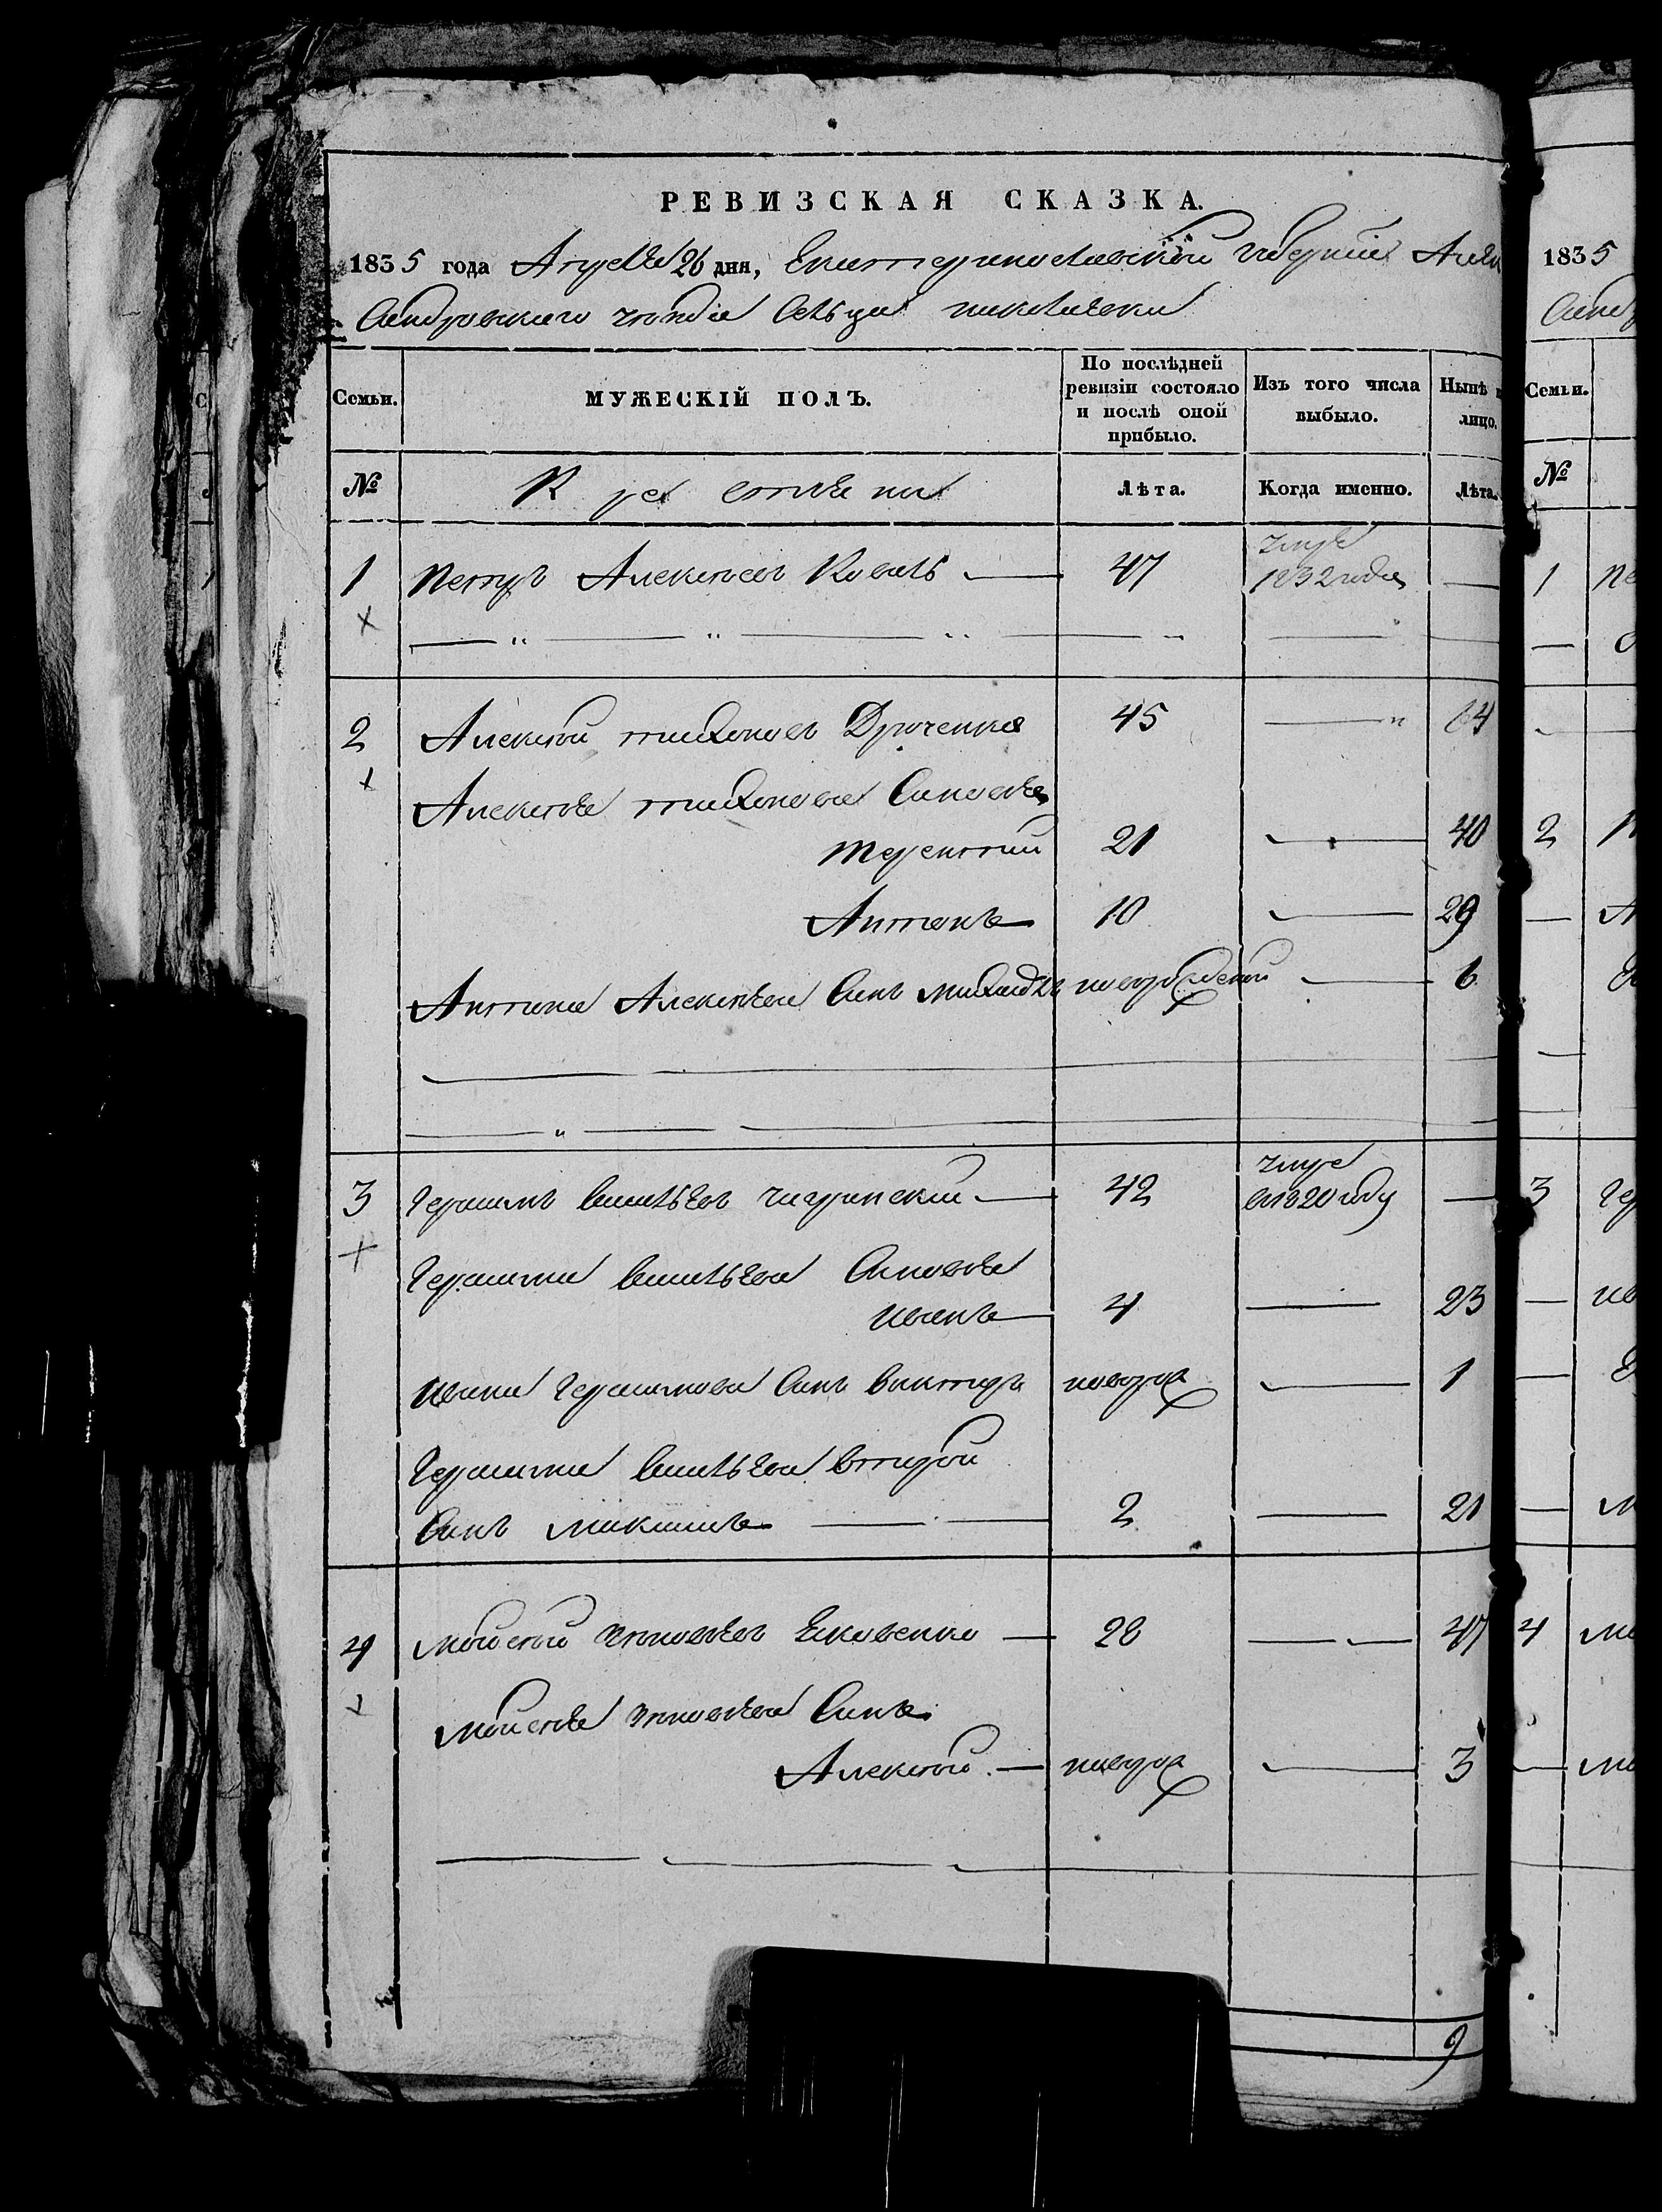 РЕВИЗСКАЯ СКАЗКА.
1835 года Априля 26 дня, Екатеринославской Губернии Алек
сандровского уезда Сельца Николаевки
Семьи.
МУЖЕСКІЙ ПОЛЪ.
По послѣдней ревизіи состояло и послѣ оной прибыло.
Изъ того числа выбыло.
Нынѣ
лицо.
№
Крестьяне
Лѣта.
Когда именно.
Лѣта.
1 Петръ Алексеевъ Коваль 47 умре 1832 года
2 Алексей Тихоновъ Дрюченко 45 64
Алексея Тихонова Синовья
Терентий 21 40
Антонъ 10 29
Антона Алексеева Синъ Михаилъ новорожденой 6
3 Герасимъ Васильевъ Чигринский 42 умре 1820 году
Герасима Васильева Синовья
Иванъ 4 23
Ивана Герасимова Синъ Викторъ новорож 1
Герасима Васильева второй
Синъ Максимъ 2 21
4 Мойсей Яковенко 28 47
Мойсея Синъ
Алексей новорож 3
9
1835
Семьи.
№
1
2
3
4